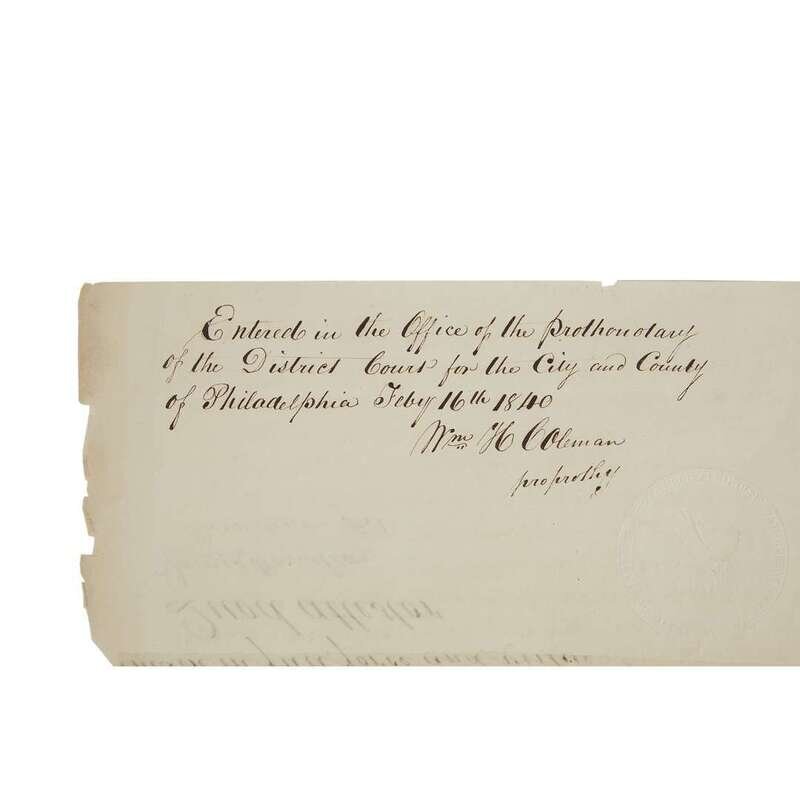 Entered in the Office of the Prothonotary
of the District Court for the City and County
of Philadelphia Feby 16th 1840
Wm H Coleman
proprothy
Quod attestor